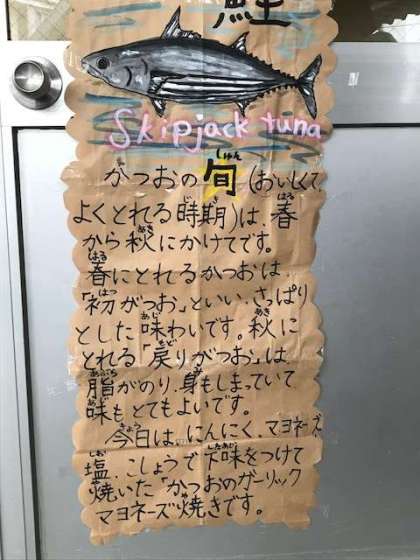 Skipjack tuna
しゅん
かつおの旬(おいしくて、
じき はる
よくとれる時期)は、春
あき
から秋にかけてです。
はる
春にとれるかつおは、
はつ
「初がつお」といい、さっぱり
あじ あき
とした味わいです。秋に
もど
とれる「戻りがつお」は
あぶら み
脂がのり、身もしまっていて
あじ
味もとてもよいです。
きょう
今日は、にんにく、マヨネーズ、
しお したあじ
塩、こしょうで下味をつけて
や
焼いた「かつおのガーリック
マヨネーズ焼きです。